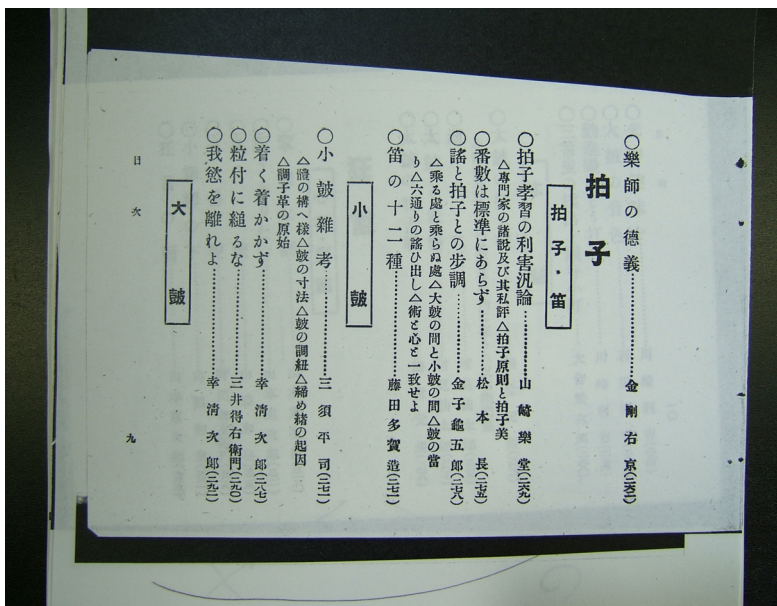 ○樂師の德義…………金剛右京(二六六)
拍子
拍子・笛
○拍子孝習の利害汎論…………山崎樂堂(二六九)
△專門家の諸說及び其私評△拍子原則と拍子美
○番數は標準にあらず…………松本長(二七五)
○謠と拍子との步調…………金子龜五郎(二七六)
△乘る處と乘らぬ處△大皷の間と小皷の間△皷の當
り△六通りの謠ひ出し△術と心と一致せよ
○笛の十二種…………藤田多賀造(二七一)
小皷
○小皷雜考…………三須平司(二七一)
の構へ樣△皷の寸法△皷の調紐△締め緖の起因
△調子革の原始
○着く着かかず…………幸淸次郎(二八七)
○粒付に縋るな…………三井得右衞門(二九〇)
○我慾を離れよ…………幸淸次郎(二九一)
大皷
目次
九